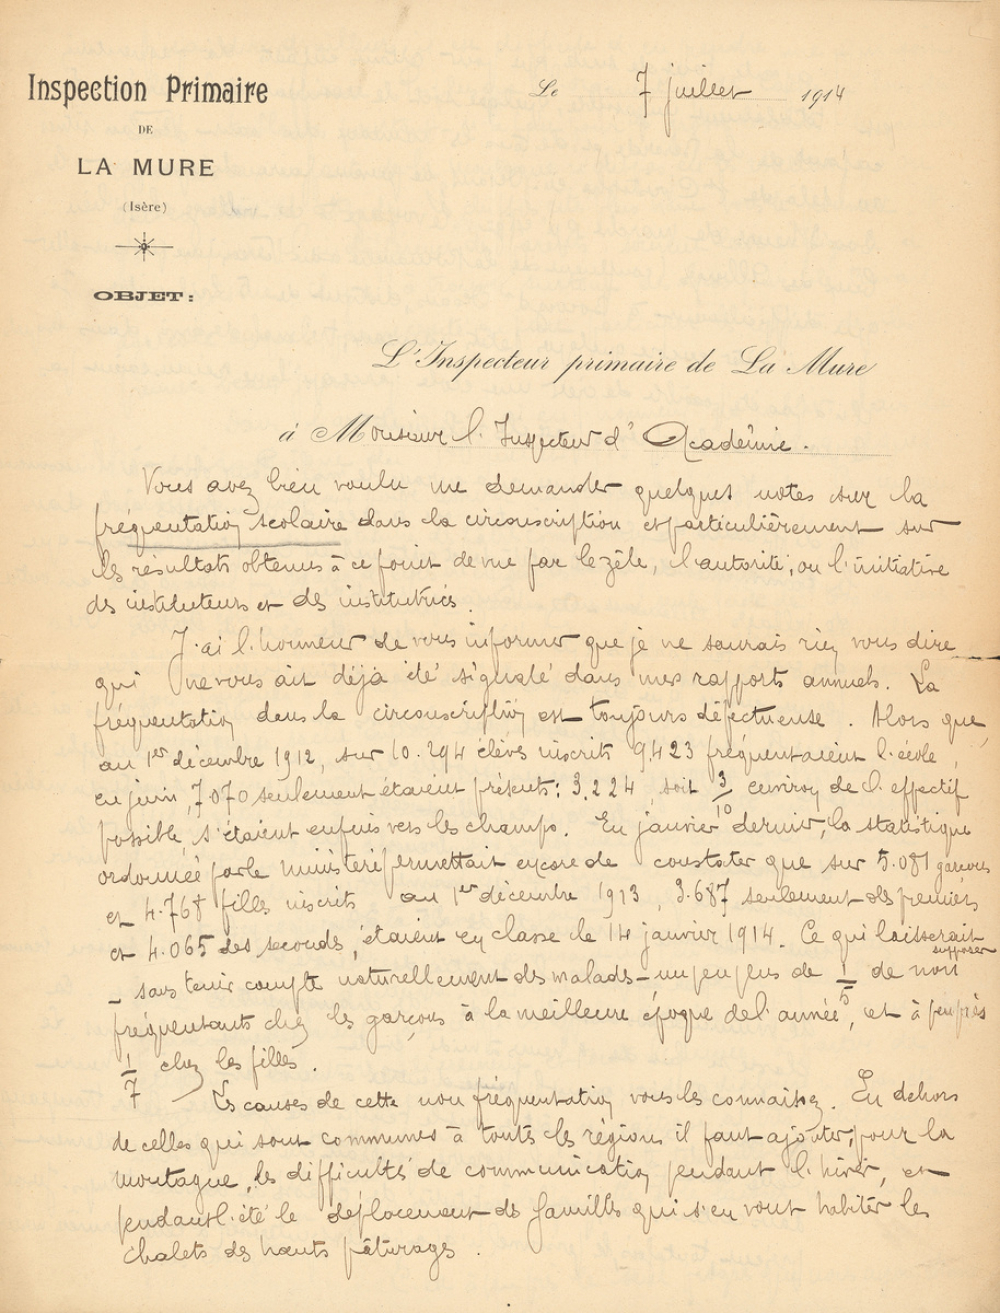 Inspection Primaire
DE
LA MURE
(Isère)
OBJET:
Le 7 juillet 1914
L'Inspecteur primaire de La Mure
à Monsieur l'Inspecteur d'Académie.
Vous avez bien voulu me demander quelques notes sur la
fréquentation scolaire dans la circonscription et particulièrement sur
les résultats obtenus à ce point de vue par le zèle, l'autorité, ou l'initiative
des instituteurs et des institutrices.
J'ai l'honneur de vous informer que je ne saurais rien vous dire
qui ne vous ait déjà été signalé dans mes rapports annuels. La
fréquentation dans la circonscription est toujours défectueuse. Alors que,
au 1er décembre 1912, sur 10.294 élèves inscrits 9.423 fréquentaient l'école,
en juin, 7.070 seulement étaient présents: 3.224, soit 3/10 environ de l'effectif
possible, s'étaient enfuis vers les champs. En janvier dernier, la statistique
ordonnée par le ministère permettait encore de constater que sur 5.081 garçons
et 4.768 filles inscrits au 1er décembre 1913, 3.687 seulement des premiers
et 4.065 des secondes, étaient en classe le 14 janvier 1914. Ce qui laisserait supposer
- sans tenir compte naturellement des malades - un peu plus de 1/5 de non
fréquentants chez les garçons à la meilleure époque de l'année, et à peu près
1/7 chez les filles.
Les causes de cette non fréquentation vous les connaissez. En dehors
de celles qui sont communes à toutes les régions il faut ajouter, pour la
montagne, les difficultés de communication pendant l'hiver, et
pendant l'été le déplacement des familles qui s'en vont habiter les
chalets des hauts pâturages.